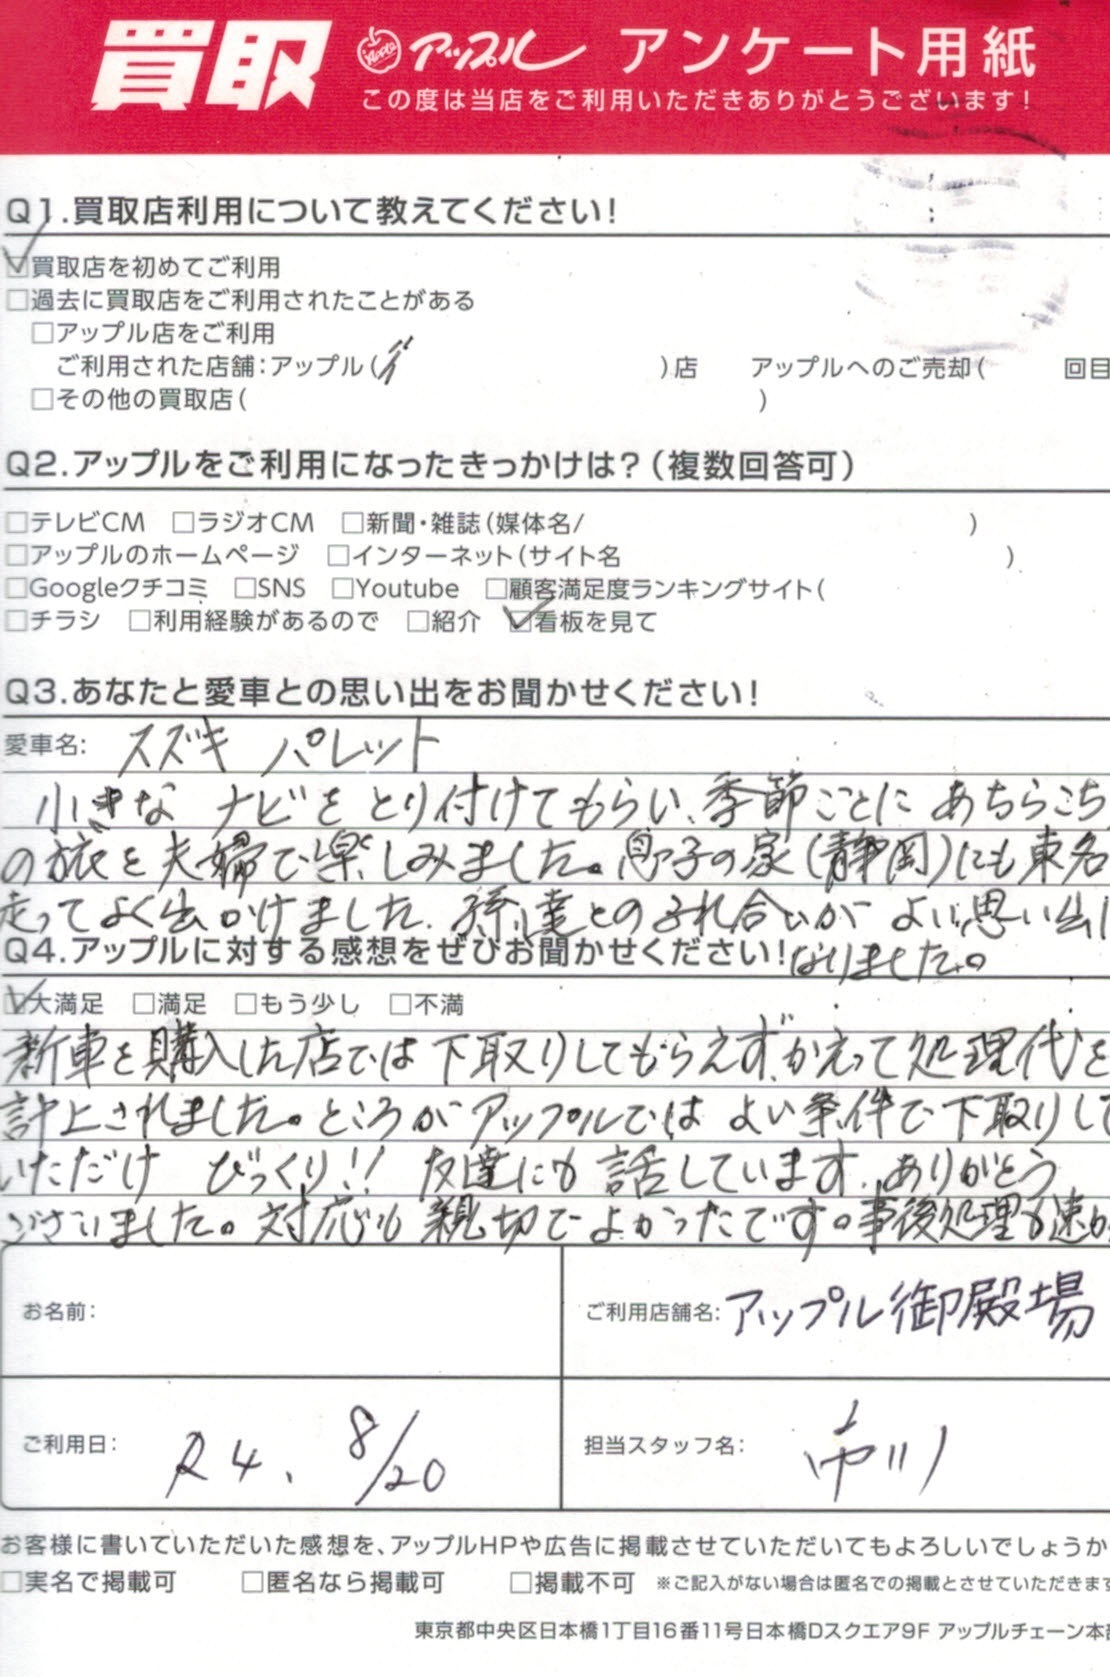 買取 アップル アンケート用紙
この度は当店をご利用いただきありがとうございます!
Q1.買取店利用について教えてください!
☑買取店を初めてご利用
□過去に買取店をご利用されたことがある
□アップル店をご利用
ご利用された店舗:アップル( )店 アップルへのご売却( 回目
□その他の買取店( )
Q2.アップルをご利用になったきっかけは?(複数回答可)
□テレビCM □ラジオCM □新聞・雑誌(媒体名/ )
□アップルのホームページ □インターネット(サイト名 )
□Googleクチコミ □SNS □Youtube □顧客満足度ランキングサイト(
□チラシ □利用経験があるので □紹介 ☑看板を見て
Q3.あなたと愛車との思い出をお聞かせください!
愛車名: スズキ パレット
小さな ナビを とり付けてもらい、季節ごとに あちらこちら
の旅を夫婦で楽しみました。息子の家(静岡)にも東名
走ってよく出かけました。孫達とのふれ合いが よい思い出に
なりました。
Q4.アップルに対する感想をぜひお聞かせください!
☑大満足 □満足 □もう少し □不満
新車を購入した店では下取りしてもらえず、かえって処理代を
計上されました。ところがアップルでは よい条件で下取りして
いただけ びっくり!! 友達にも話しています。ありがとう
ございました。対応も親切でよかったです。事後処理も速か
お名前:
ご利用店舗名: アップル御殿場
ご利用日: R4. 8/20
担当スタッフ名: 市川
お客様に書いていただいた感想を、アップルHPや広告に掲載させていただいてもよろしいでしょうか
□実名で掲載可 □匿名なら掲載可 □掲載不可 ※ご記入がない場合は匿名での掲載とさせていただきます
東京都中央区日本橋1丁目16番11号日本橋Dスクエア9F アップルチェーン本部